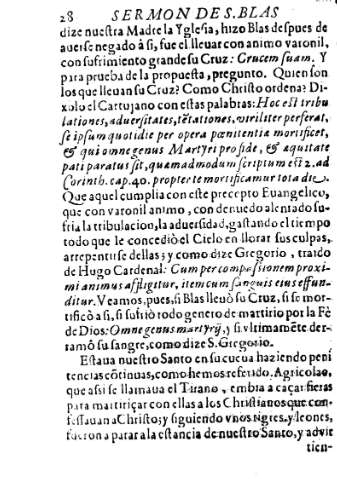 28 SERMON DE S. BLAS
dize nuestra Madre la Yglesia, hizo Blas despues de
auerse negado à si, fue el lleuar con animo varonil,
con sufrimiento grande su Cruz: Crucem suam. Y
para prueba de la propuesta, pregunto. Quien son
los que lleuan su Cruz? Como Christo ordena? Di-
xolo el Cartujano con estas palabras: Hoc est tribu
lationes, aduersitates, tẽtationes, viriliter perferat,
se ipsum quotidie per opera pœnitentia mortificet,
& qui omne genus Martyrij pro fide, & aquitate
pati paratus sit, quemadmodum scriptum est 2. ad
Corinth. cap. 40. propter te mortificamur tota die.
Que aquel cumplia con este precepto Euangelico,
que con varonil animo, con denuedo alentado su-
fria la tribulacion, la aduersidad, gastando el tiempo
todo que le concediò el Cielo en llorar sus culpas,
arrepentirse dellas; y como dize Gregorio, traido
de Hugo Cardenal: Cum per compassionem proxi-
mi animus affligitur, item cum sanguis eius effun-
ditur. Veamos, pues, si Blas lleuò su Cruz, si se mor-
tificò a si, si sufriò todo genero de martirio por la Fè
de Dios: Omne genus martyrij, y si vltimamẽte der-
ramò su sangre, como dize S. Gregorio.
Estaua nuestro Santo en su cueua haziendo peni
tencias cõtinuas, como hemos referido. Agricolao,
que assi se llamaua el Tirano, embia a caçar fieras
para martiriçar con ellas a los Christianos que con-
fessauan a Christo; y siguiendo vnos tigres, y leones,
fueron a parar a la estancia de nuestro Santo, y advir
tien-